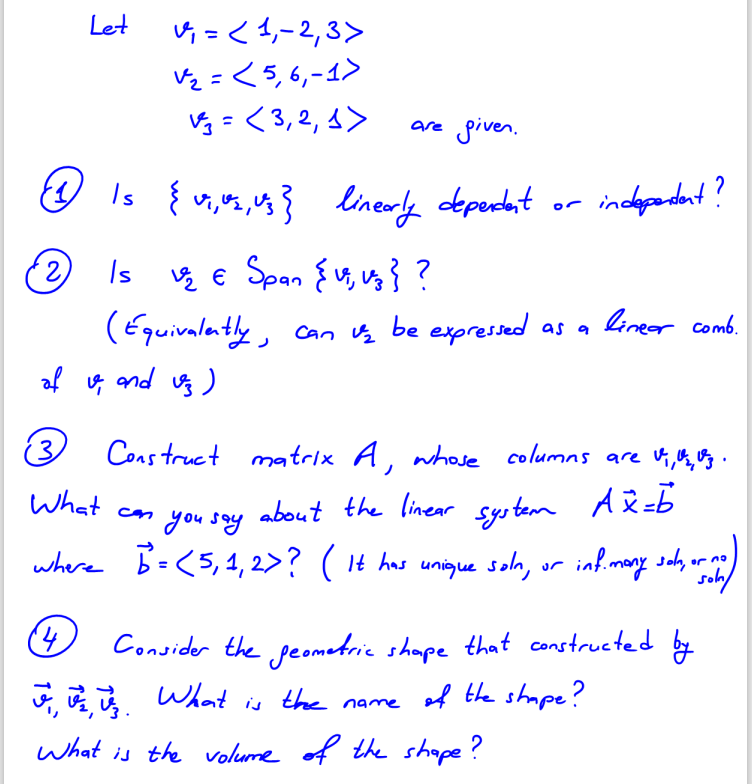 Let v₁ = < 1,-2,3>
v₂ = < 5, 6,-1>
v₃ = < 3, 2, 1> are given.
① Is { v₁,v₂,v₃ } linearly dependent or independent?
② Is v₂ ∈ Span { v₁, v₃ } ?
(Equivalently, can v₂ be expressed as a linear comb.
of v₁ and v₃ )
③ Construct matrix A, whose columns are v₁,v₂,v₃ .
What can you say about the linear system A x⃗ = b⃗
where b⃗ = <5, 1, 2> ? ( It has unique soln, or inf. many soln, or no soln)
④ Consider the geometric shape that constructed by
v⃗₁, v⃗₂, v⃗₃. What is the name of the shape?
What is the volume of the shape?